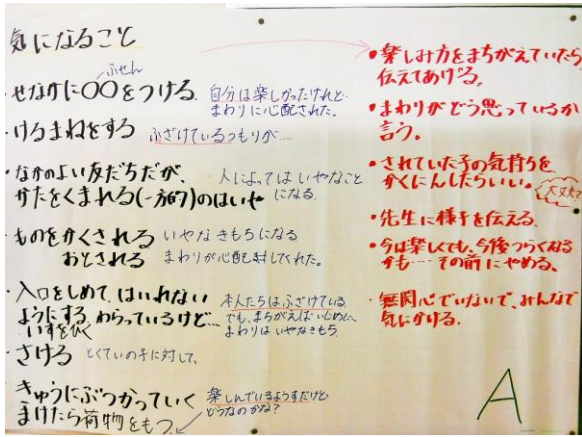 気になること
ふせん
・せなかに〇〇をつける
自分は楽しかったけれど
まわりに心配された。
・けるまねをする
ふざけているつもりが…
・なかのよい友だちだが、
かたをくまれる(一方的?)のはいや
人によってはいやなこと
になる
・ものをかくされる
おとされる
いやなきもちになる
まわりが心配してくれた。
・入口をしめて、はいれない
ようにする わらっているけど…
いすをひく
本人たちはふざけている
でも、まちがえばいじめに、
まわりはいやなきもち
・さける とくていの子に対して、
・きゅうにぶつかっていく
まけたら荷物をもつ
楽しんでいるようすだけど
どうなのかな?
・楽しみ方をまちがえていたら
伝えてあげる。
・まわりがどう思っているか
言う。
・されていた子の気持ちを
かくにんしたらいい。
大丈夫?
・先生に様子を伝える
・今は楽しくても、今後つらくなる
かも…その前にやめる。
・無関心でいないで、みんなで
気にかける.
A